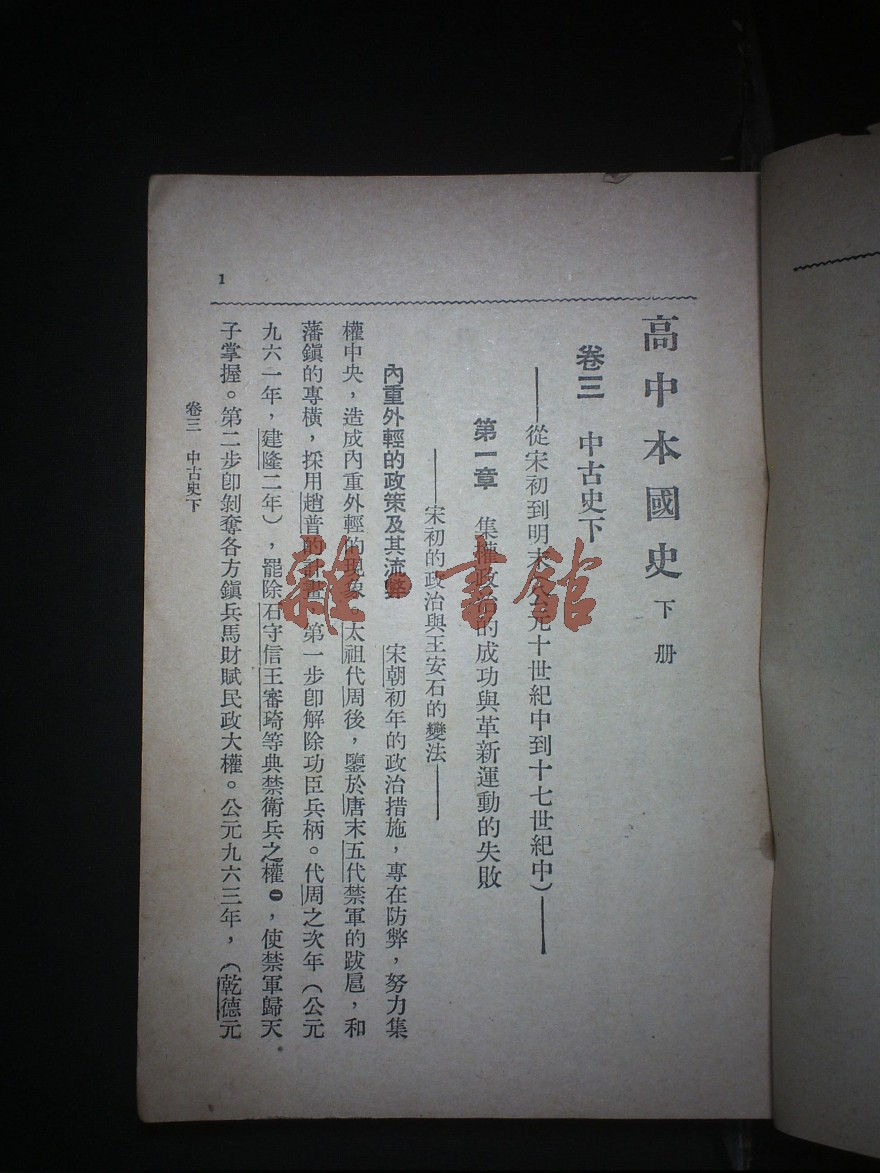 高中本國史 下册
卷三 中古史下
——從宋初到明末(公元十世紀中到十七世紀中)——
第一章 集權政治的成功與革新運動的失敗
——宋初的政治與王安石的變法——
內重外輕的政策及其流弊 宋朝初年的政治措施，專在防弊，努力集
權中央，造成內重外輕的現象。太祖代周後，鑒於唐末五代禁軍的跋扈，和
藩鎮的專橫，採用趙普的計畫，第一步卽解除功臣兵柄。代周之次年(公元
九六一年，建隆二年)，罷除石守信王審琦等典禁衛兵之權㊀，使禁軍歸天
子掌握。第二步卽剝奪各方鎮兵馬財賦民政大權。公元九六三年，(乾德元
卷三 中古史下
1
雜·書館